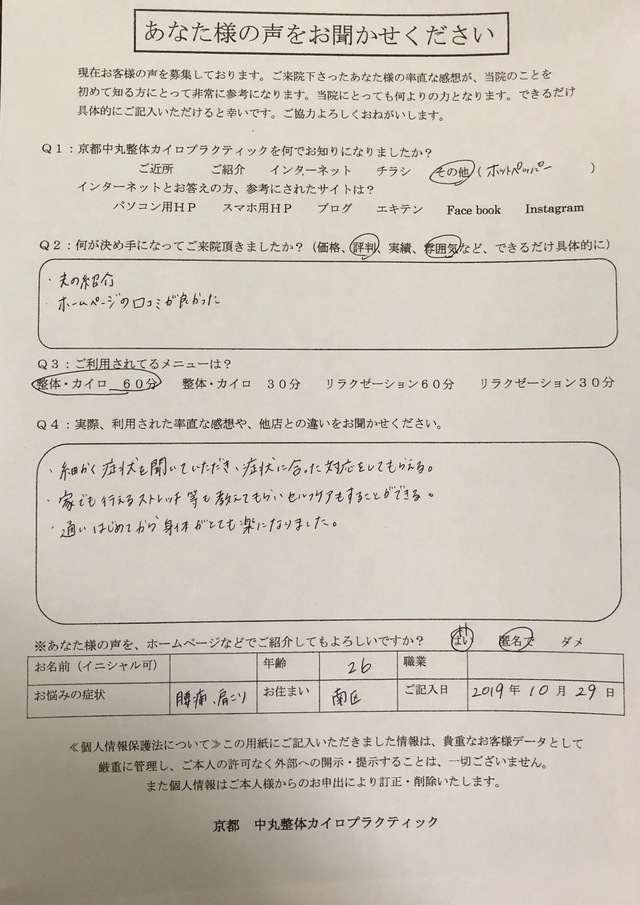 あなた様の声をお聞かせください
現在お客様の声を募集しております。ご来院下さったあなた様の率直な感想が、当院のことを
初めて知る方にとって非常に参考になります。当院にとっても何よりの力となります。できるだけ
具体的にご記入いただけると幸いです。ご協力よろしくおねがいします。
Q1：京都中丸整体カイロプラクティックを何でお知りになりましたか？
ご近所 ご紹介 インターネット チラシ その他（ホットペッパー ）
インターネットとお答えの方、参考にされたサイトは？
パソコン用HP スマホ用HP ブログ エキテン Face book Instagram
Q2：何が決め手になってご来院頂きましたか？（価格、評判、実績、雰囲気など、できるだけ具体的に）
・夫の紹介
・ホームページの口コミが良かった
Q3：ご利用されてるメニューは？
整体・カイロ 60分 整体・カイロ 30分 リラクゼーション60分 リラクゼーション30分
Q4：実際、利用された率直な感想や、他店との違いをお聞かせください。
・細かく症状を聞いていただき、症状に合った対応をしてもらえる。
・家でも行えるストレッチ等も教えてもらいセルフケアもすることができる。
・通いはじめてから身体がとても楽になりました。
※あなた様の声を、ホームページなどでご紹介してもよろしいですか？ はい 匿名で ダメ
お名前（イニシャル可） 年齢 26 職業
お悩みの症状 腰痛、肩こり お住まい 南区 ご記入日 2019年10月29日
≪個人情報保護法について≫この用紙にご記入いただきました情報は、貴重なお客様データとして
厳重に管理し、ご本人の許可なく外部への開示・提示することは、一切ございません。
また個人情報はご本人様からのお申出により訂正・削除いたします。
京都 中丸整体カイロプラクティック